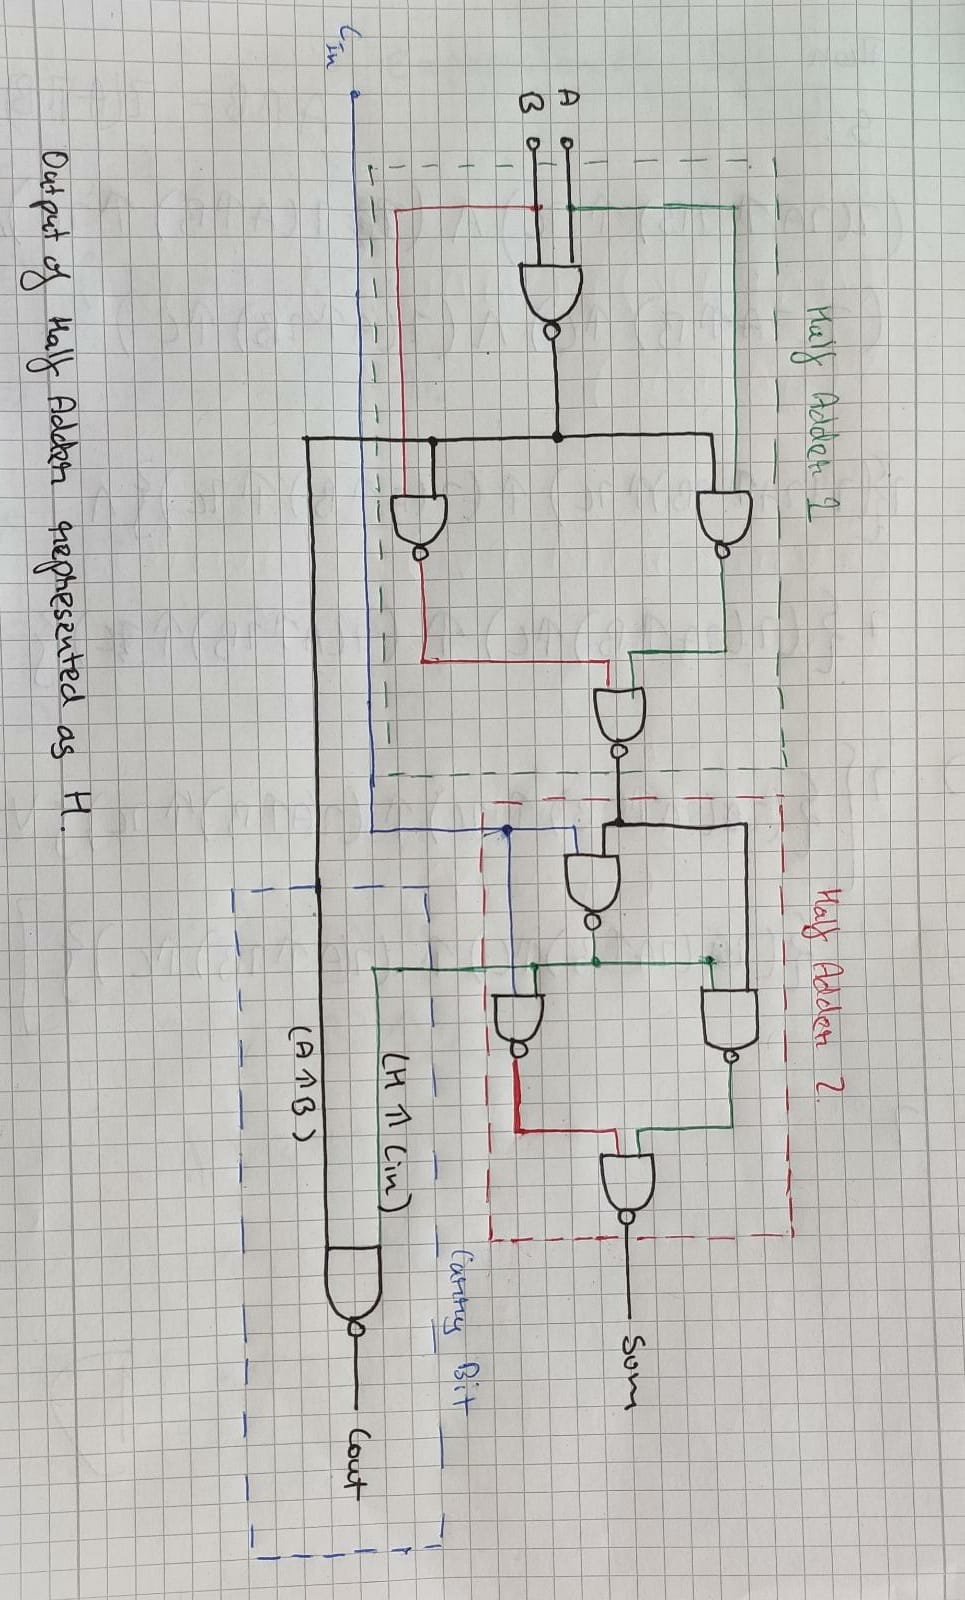 Half Adder 1
Half Adder 2.
A
B
Cin
Sum
Carry Bit
(H ↑ Cin)
(A↑B)
Cout
Output of Half Adder represented as H.